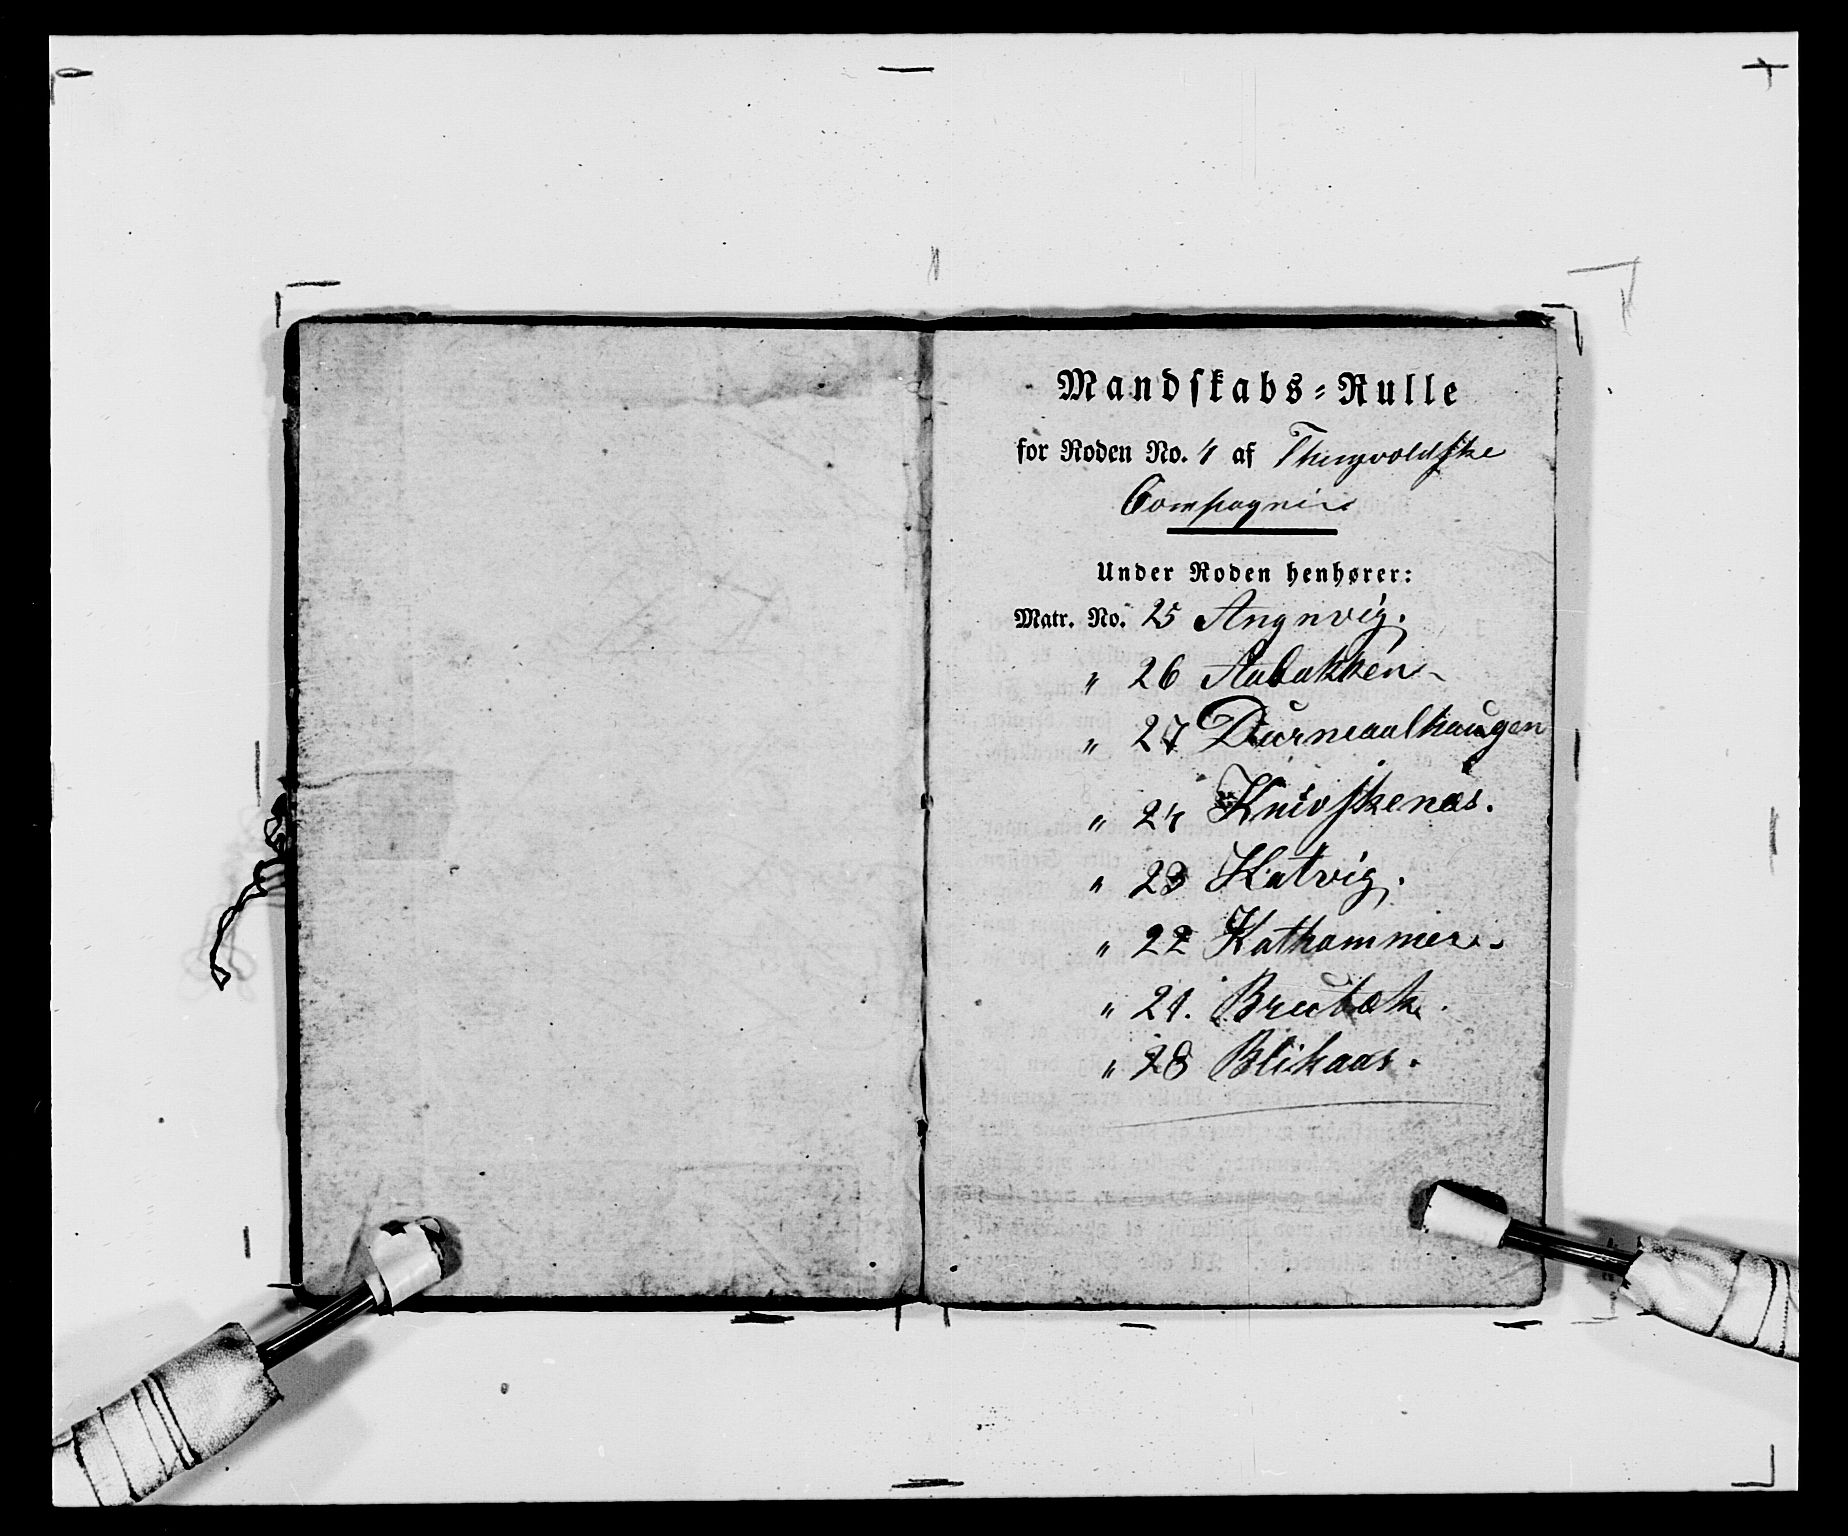 Mandskabs-Rulle
for Roden No. 4 af Thingvoldske
Compagnie
Under Roden henhører:
Matr. No. 25 Angnvig.
" 26 Aabakken
" 27 Durmaalhaugen
" 24 Knivskenæs.
" 23 Katvig.
" 22 Kathammer.
" 21. Brubæk.
" 28 Blikaas.